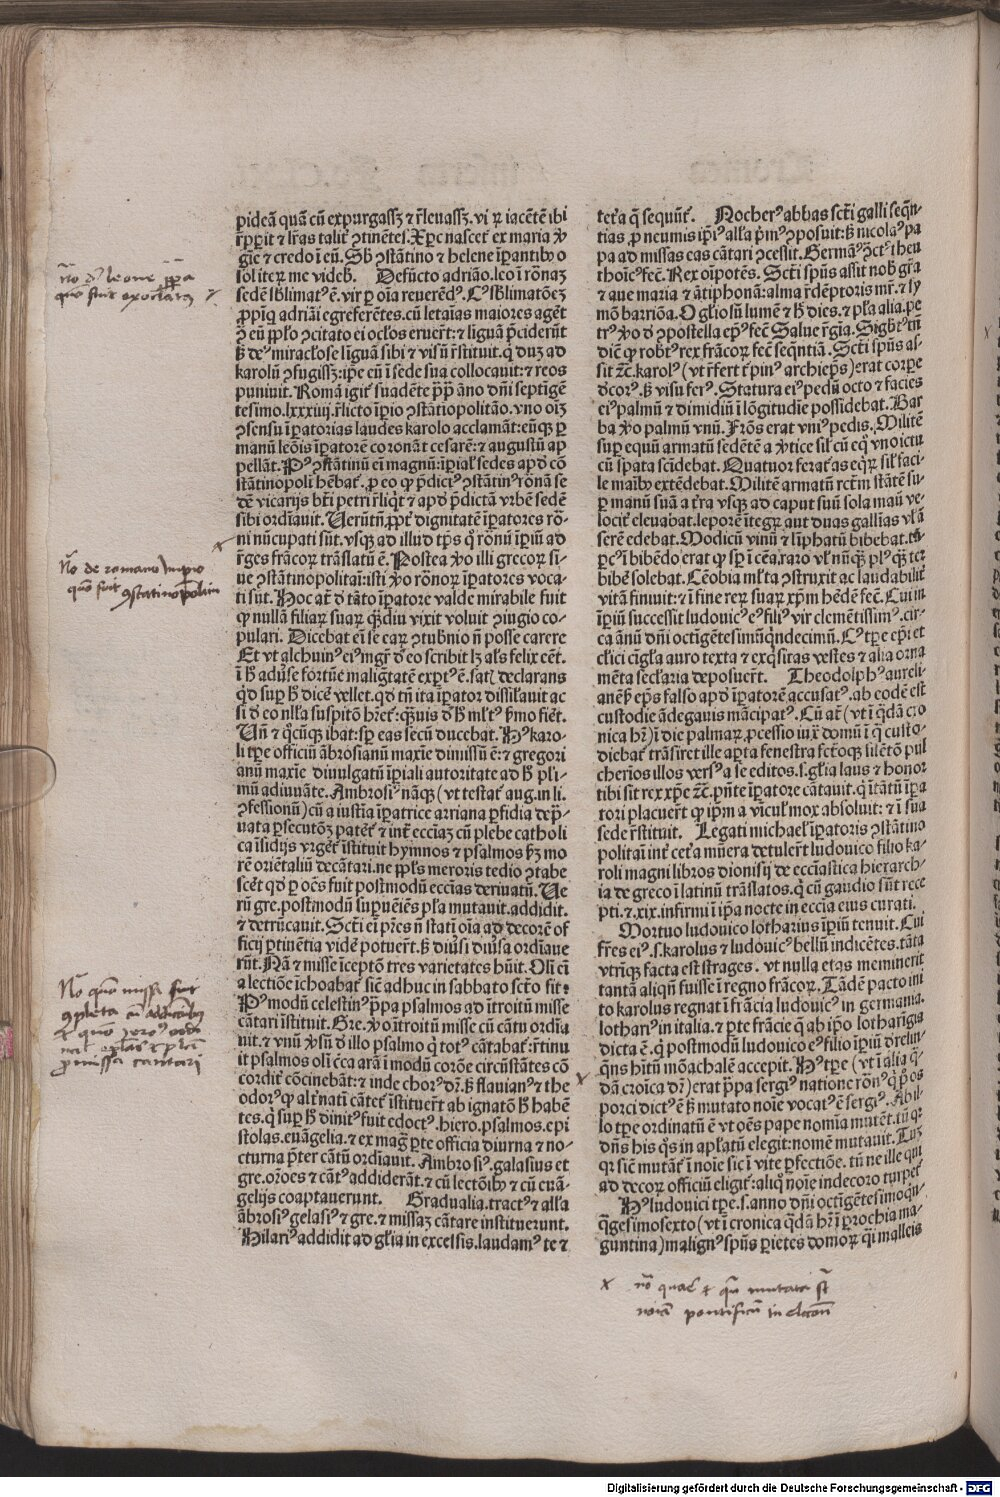 pideā quā cū expurgassꝫ ⁊ r̄leuassꝫ. vi ꝝ iacētē ibi
r̄ꝑerit ⁊ lr̄as talit̉ ↄtinētes. Xp̄c nascet̉ ex maria ꝟ
gīe ⁊ credo ī eū. Sb̄ ↄstātino ⁊ helene īꝑantibꝰ o
sol iteꝝ me videb̄. Defūcto adriāo. leo ī rōnaꝫ
sedē sb̄limatꝰ ē. vir ꝑ oīa reuerēdꝰ. Cꝰ sb̄limatōeꝫ
ꝓpīqͥ adriāi egre ferētes. cū letaīas maiores aget̉
ↄ̄ eū pp̄lo ↄcitato ei ocl̓os eruer̄t: ⁊ liguā p̄ciderūt
ꝫ deꝰ miracl̓ose liguā sibi ⁊ visū r̄stituit. qͥ duꝫ ad
karolū ↄfugissꝫ: ip̄e eū ī sede sua collocauit: ⁊ reos
puniuit. Romā igit̉ suadēte p̄p̄ āno dn̄i septigē
tesimo. lxxxiiij. r̄licto īꝑio ↄstātiopolitāo. vno oīꝫ
ↄsensu īꝑatorias laudes karolo acclamāt: eūqꝫ ꝑ
manū leōis īꝑatorē coronāt cesarē: ⁊ augustū ap
pellāt. Pꝰ ↄstātinū ei magnū: īꝑial̓ sedes apd̓ cō
stātinopoli hēbat̉. ꝓ eo ꝙ p̄dicꝰ ↄstātinꝰ rōnā se
dē vicarijs bt̄i petri r̄liqͥt ⁊ apd̓ p̄dictā vrbē sedē
sibi ordīauit. Uerūtn̄. ꝓpt̉ dignitatē īꝑatores rō
ni nūcupati sūt. vsqꝫ ad illud tp̄s qͦ rōnū īꝑiū ad
r̄ges frācoꝝ trāslatū ē. Postea ꝟo illi grecoꝝ si
ue ↄstātinopolitaī: isti ꝟo rōnoꝝ īꝑatores voca
ti sūt. Hoc at̄ d̓ tāto īꝑatore valde mirabile fuit
ꝙ nullā filiaꝝ suaꝝ qͣdiu vixit voluit ↄiugio co
pulari. Dicebat ei se eaꝝ ↄtub̓nio n̄ posse carere
Et vt alchuinꝰ eiꝰ mgr̄ d̓ eo scribit lꝫ al̓s felix cēt.
ī h̄ aduͥse fortūe malignitatē expt̓ꝰ ē. satꝭ declarans
qd̓ suꝑ h̄ dicē vellet. qd̓ tn̄ ita īꝑator dissil̓auit ac
si d̓ eo nll̓a suspitō hr̄et: qͣuis d̓ h̄ ml̓tꝰ s̓mo fiet̉.
Uñ ⁊ qͦcūqꝫ ibat: sꝑ eas secū ducebat. Hꝰ karo
li tꝑe officiū ābrosianū maxīe dimissū ē: ⁊ gregori
anū maxīe diuulgatū īꝑiali autoritate ad h̄ pl̓i
mū adiuuāte. Ambrosiꝰ nāqꝫ (vt testat̉ aug. in li.
ↄfessionū) cū a iustīa īꝑatrice arriana ꝑfidia dep̄
uata ꝑsecutōꝫ patet̉ ⁊ int̉ ecciaꝫ cū plebe catholi
ca īsidijs vrget̉ īstituit hymnos ⁊ psalmos ẜꝫ mo
rē oriētaliū decātari. ne pp̄ls meroris tedio ↄtabe
scēt qd̓ ꝑ oēs fuit postmodū eccīas deriuatū. Ue
rū gre. postmodū suꝑueiēs pl̓a mutauit. addidit.
⁊ detrūcauit. Scti ei p̄res n̄ stati oīa ad decorē of
ficij ꝑtinētia videt̉ potuer̄t. ꝫ diuͥsi diuͥsa ordīaue
rūt. Nā ⁊ misse īceptō tres varietates hūit. Oli ei
a lectiōe īchoabat̉ sic̄ adhuc in sabbato scto fit.
Pꝰmodū celestinꝰ p̄pa psalmos ad ītroitū misse
cātari īstituit. Gre. ꝟo ītroitū misse cū cātu ordīa
uit. ⁊ vnū ꝟsū d̓ illo psalmo qͥ totꝰ cātabat̉: r̄tinu
it psalmos oli cca arā ī modū corōe circūstātes cō
cordit̉ cōcinebāt: ⁊ inde chorꝰ dr̄. ꝫ flauianꝰ ⁊ the
odorꝰ ꝙ alt̓natī cātet̉ īstituer̄t ab ignatō h̄ habē
tes. qͥ suꝑ h̄ dinitꝰ fuit edoctꝰ. hiero. psalmos. epi
stolas. euāgelia. ⁊ ex mag̉ ꝑte officia diurna ⁊ no
cturna p̄ter cātū ordīauit. Ambrosiꝰ. galasius et
gre. orōes ⁊ cātꝰ addiderāt. ⁊ cū lectōibꝰ ⁊ cū euā
gelijs coaptauerunt. Gradualia. tractꝰ ⁊ all̓a
ābrosiꝰ gelasiꝰ ⁊ gre. ⁊ missaꝫ cātare instituerunt.
Hilariꝰ addidit ad gl̓ia in excelsis. laudamꝰ te ⁊
tet̓a q̄ sequūt̉. Nocherꝰ abbas scti galli seq̄n
tias ꝓ neumis ip̄iꝰ all̓a p̄mꝰ ↄposuit: ꝫ nicolaꝰ pa
pa ad missas eas cātari ↄcessit. Germāꝰ ↄctꝰ theu
thoīcꝰ fec̄. Rex oīpotēs. Scti spūs assit nob̄ gr̄a
⁊ aue maria ⁊ ātiphonā: alma r̄dēptoris mr̄. ⁊ sy
mō barriōa. O gl̓iosū lumē ⁊ h̄ dies. ⁊ pl̓a alia. pe
trꝰ ꝟo d̓ ↄpostella ep̄ꝰ fec̄ Salue r̄gīa. Sigb̓tꝰ tn̄
dic̄ ꝙ rob̓tꝰ rex frācoꝝ fec̄ seq̄ntiā. Scti spūs as
sit ⁊c̄. karolꝰ (vt r̄fert r̄pinꝰ archiep̄s) erat corꝑe
d̓corꝰ. ꝫ visu ferꝰ. Statura eiꝰ pedū octo ⁊ facies
eiꝰ palmū ⁊ dimidiū ī lōgitudīe possidebat. Bar
ba ꝟo palmū vnū. Frōs erat vniꝰ pedis. Militē
suꝑ equū armatū sedētē a ꝟtice sil̓ cū eqͦ vno ictu
cū spata scīdebat. Quatuor ferat̉as eqͦꝝ sil̓ faci
le maibꝰ extēdebat. Militē armatū rctm̄ statē su
ꝑ manū suā a tr̄a vsqꝫ ad caput suū sola maū ve
locit̉ eleuabat. leporē ītegꝝ aut duas gallīas vl̓ ā
serē edebat. Modicū vinū ⁊ līphatū bibebat.
ꝑcꝰ ī bibēdo erat ꝙ sꝑ ī cēa. raro vl̓ nūqͣ plꝰ qͣ ter
bibē solebat. Cēobia ml̓ta ↄstruxit ac laudabilit̉
vitā finiuit: ⁊ ī fine reꝝ suaꝝ xp̄m hēdē fec̄. Cui in
īꝑiū successit ludouicꝰ eꝰ filiꝰ vir clemētissimꝰ. cir
ca ānū dn̄i octīgētesimū qͥndecimū. Cꝰ tꝑe ep̄i et
cl̓ici cīgl̓a auro texta ⁊ exqͥsitas vestes ⁊ alia orna
mēta secl̓aria deposuer̄t. Theodolphꝰ aureli
anēẜ ep̄s falso apd̓ īꝑatorē accusatꝰ. ab eodē est
custodie ādegauis mācipatꝰ. Cū at̄ (vt ī qͣdā cro
nica hr̄) ī die palmaꝝ. ꝓcessio iux̄ domū ī q̄ custo
diebat̉ trāsiret ille aꝑta fenestra fctoqꝫ silētō pul
cherīos illos versꝰ a se editos. s. gl̓ia laus ⁊ honor
tibi sit rex xp̄e ⁊c̄. p̄nte īꝑatore cātauit. qͥ ītātū īꝑa
tori placuer̄t ꝙ ip̄m a vīcul̓ mox absoluit: ⁊ ī sua
sede r̄stituit. Legati michael̓ īꝑatoris ↄstātino
politaī int̉ cet̓a mūera detuler̄t ludouico filio ka
roli magni libros dionisij de eccīastica hierarch
ia de greco ī latinū trāslatos. qͥ cū gaudio sūt rece
pti. ⁊. xix. infirmi ī ip̄a nocte in eccīa eius curati.
Mortuo ludouico lotharius īꝑiū tenuit. Cui
fr̄es eiꝰ. s. karolus ⁊ ludouicꝰ bellū indicētes. tāta
vtrīqꝫ facta est strages. vt nulla etas meminerit
tantā aliqn̄ fuisse ī regno frācoꝝ. Tādē pacto ini
to karolus regnat ī frācia ludouicꝰ in germania.
lotharꝰ in italia. ⁊ ꝑte frācie q̄ ab ip̄o lotharīgia
dicta ē. qͥ postmodū ludouico eꝰ filio īꝑiū d̓relin
q̄ns hitū mōachalē accepit. Hꝰ tꝑe (vt ī alia qͣ
dā croīca dr̄) erat p̄pa sergiꝰ natione rōnꝰ qͥ pͥ os
porci dictꝰ ē ꝫ mutato noīe vocatꝰ ē sergiꝰ. Ab il
lo tꝑe ordinatū ē vt oēs pape nomīa mutēt. tū qͥ
dn̄s his qͦs in apl̓atū elegit: nomē mutauit. Tuꝫ
qꝛ sic̄ mutāt̉ ī noīe sic ī vite ꝑfectiōe. tū ne ille qui
ad decoꝝ officiū eligit̉: aliqͦ noīe indecoro turpet̉
Hꝰ ludouici tꝑe. s. anno dn̄i octīgētesimoqͥn
q̄gesimosexto (vt ī cronica qͣdā hr̄ ī ꝑrochia ma
guntina) malignꝰ spūs ꝑietes domoꝝ qͣi malleis
nō de romano Imꝑio
quō fuit ↄstatinopolim
Nō quō missa fuit
ꝓ missa cantari
Digitalisierung gefördert durch die Deutsche Forschungsgemeinschaft - DFG